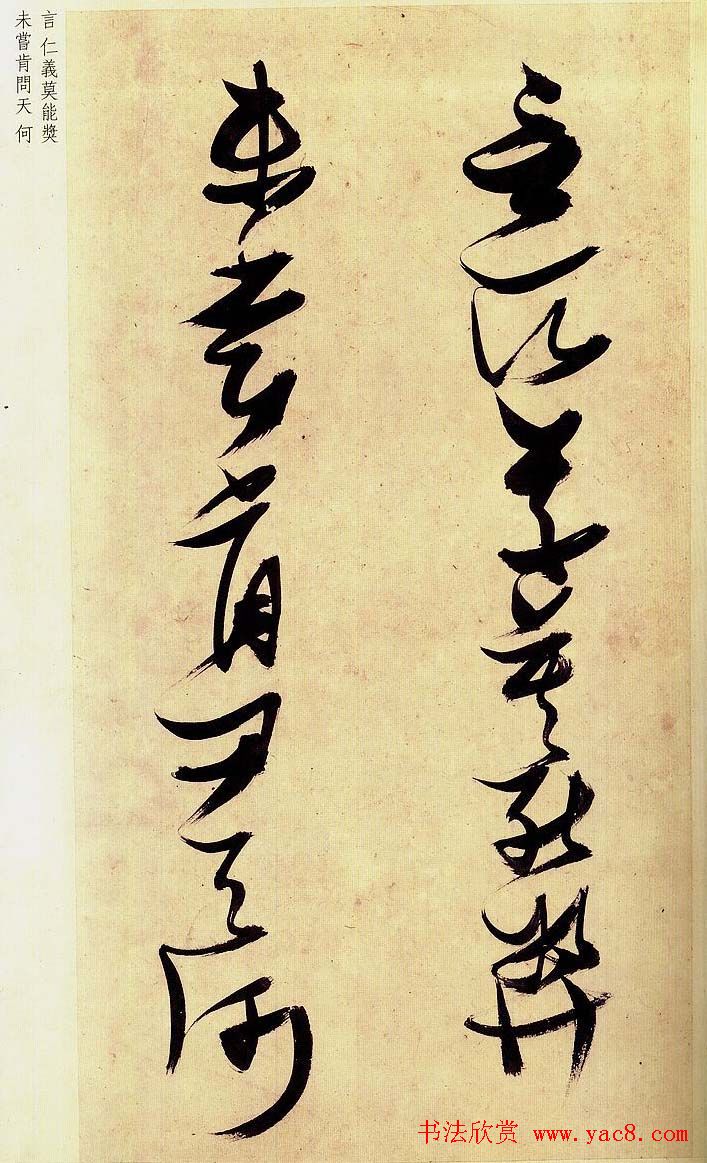 言仁義莫能獎
未嘗肯問天何
言仁義莫能獎
未嘗肯問天何
书法欣赏 www.yac8.com